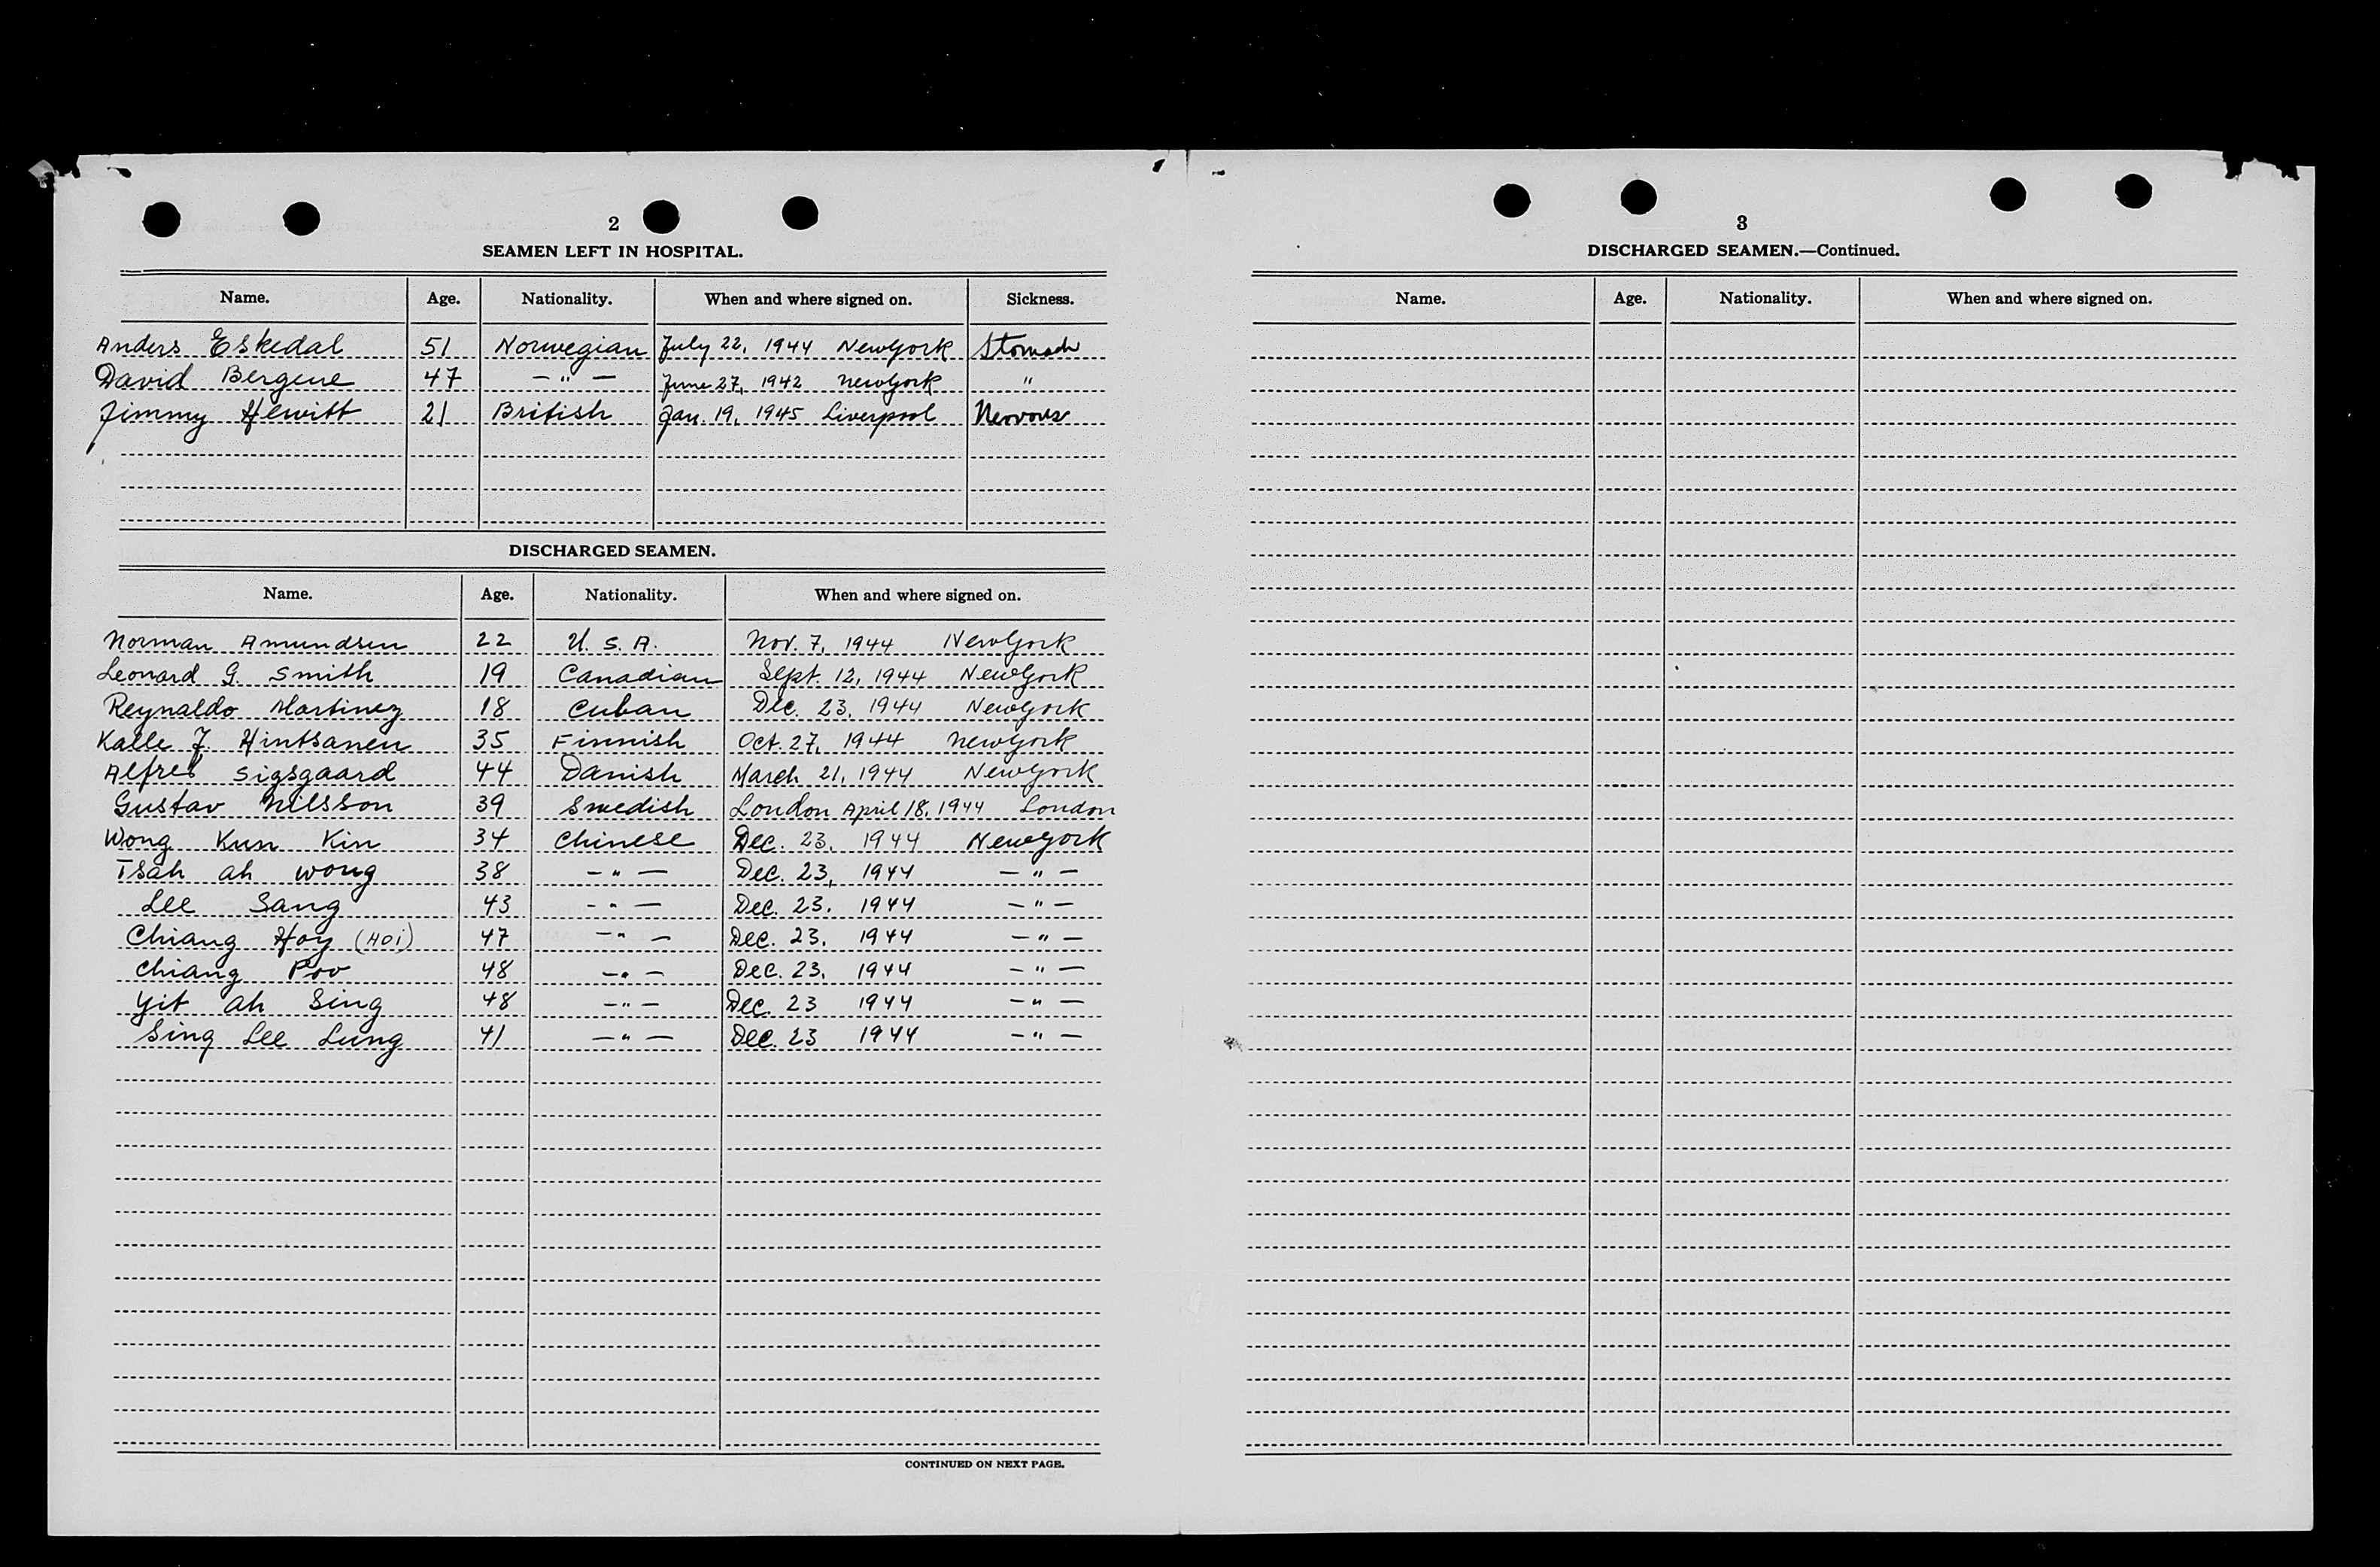 2
SEAMEN LEFT IN HOSPITAL.
Name. Age. Nationality. When and where signed on. Sickness.
Anders Eskedal 51 Norwegian July 22, 1944 New York Stomach
David Bergene 47 — " — June 27, 1942 New York "
Jimmy Hewitt 21 British Jan. 19, 1945 Liverpool Nervous
DISCHARGED SEAMEN.
Name. Age. Nationality. When and where signed on.
Norman Amundsen 22 U. S. A. Nov. 7, 1944 New York
Leonard G. Smith 19 Canadian Sept. 12, 1944 New York
Reynaldo Martinez 18 Cuban Dec. 23, 1944 New York
Kalle J. Hintsanen 35 Finnish Oct. 27, 1944 New York
Alfred Sigsgaard 44 Danish March 21, 1944 New York
Gustav Nilsson 39 Swedish London April 18, 1944 London
Wong Kun Kin 34 Chinese Dec. 23, 1944 New York
Tsah ah Wong 38 — " — Dec. 23, 1944 — " —
Lee Sang 43 — " — Dec. 23, 1944 — " —
Chiang Hoy (Hoi) 47 — " — Dec. 23, 1944 — " —
Chiang Poo 48 — " — Dec. 23, 1944 — " —
Yit ah Sing 48 — " — Dec. 23 1944 — " —
Sing Lee Lung 41 — " — Dec. 23 1944 — " —
CONTINUED ON NEXT PAGE.
3
DISCHARGED SEAMEN.—Continued.
Name. Age. Nationality. When and where signed on.